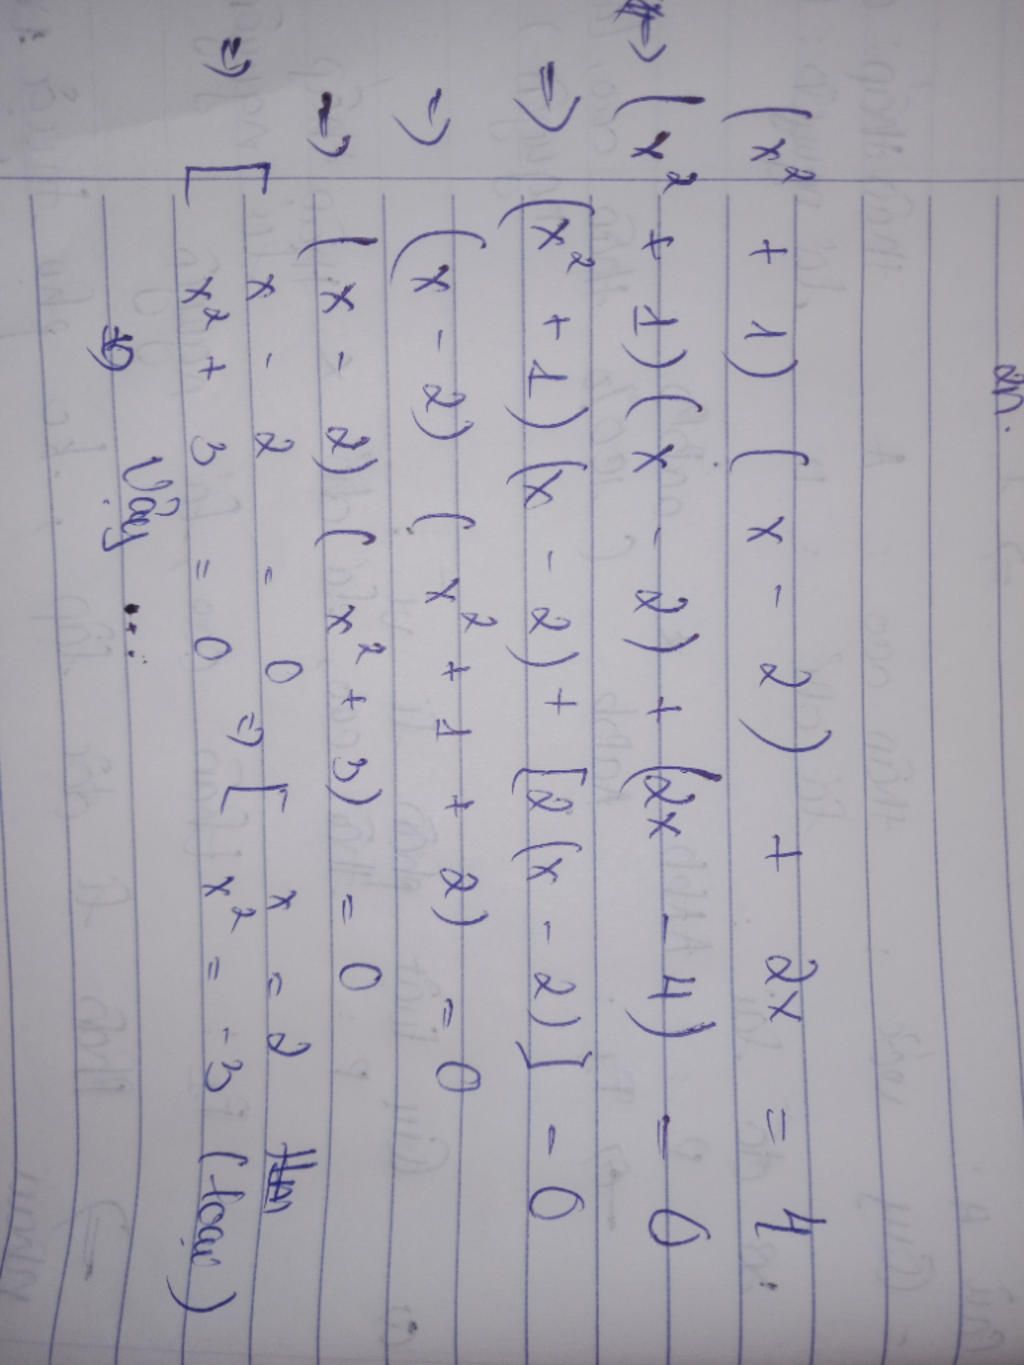 (x² + 1) (x - 2) + 2x = 4
⇔ (x² + 1) (x - 2) + (2x - 4) = 0
=> (x² + 1) (x - 2) + [2 (x - 2)] = 0
=> (x - 2) (x² + 1 + 2) = 0
=> (x - 2) (x² + 3) = 0
=> [ x - 2 = 0 => [ x = 2
x² + 3 = 0 x² = -3 (loại)
Vậy ...